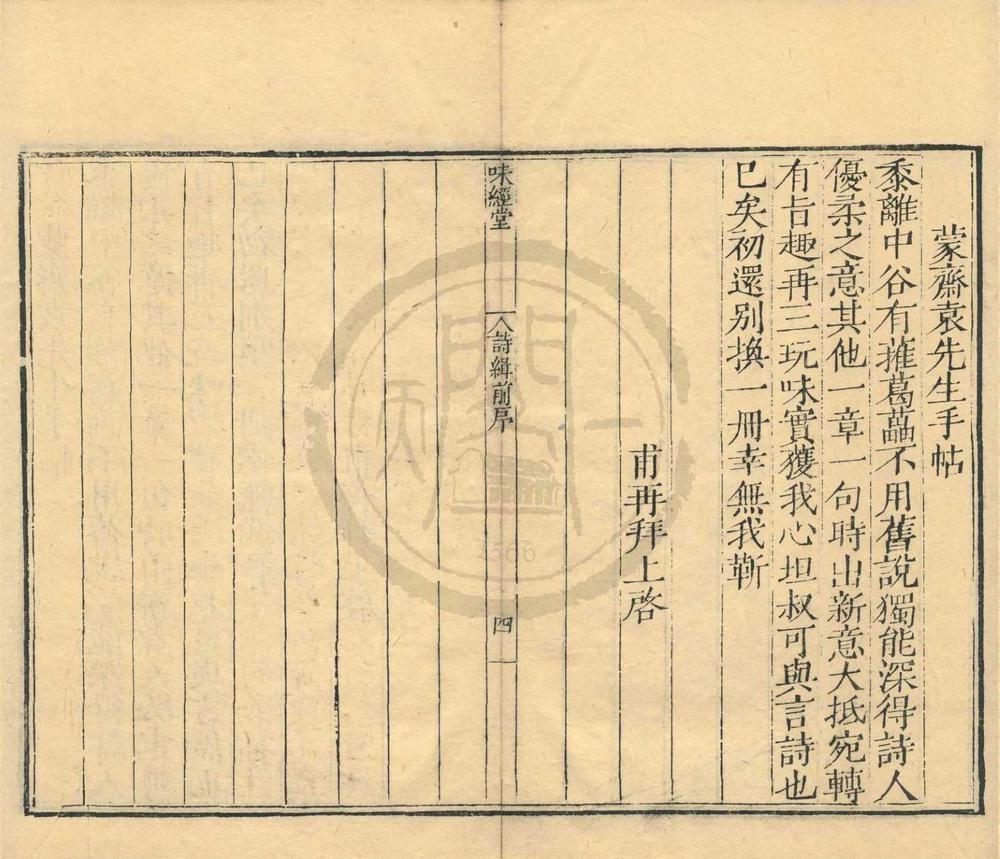 蒙齋袁先生手帖
黍離中谷有蓷葛藟不用舊說獨能深得詩人
優柔之意其他一章一句時出新意大抵宛轉
有旨趣再三玩味實獲我心坦叔可與言詩也
巳矣初還別換一冊幸無我靳
甫再拜上啓
味經堂
詩緝前序
四
天一閣
1566